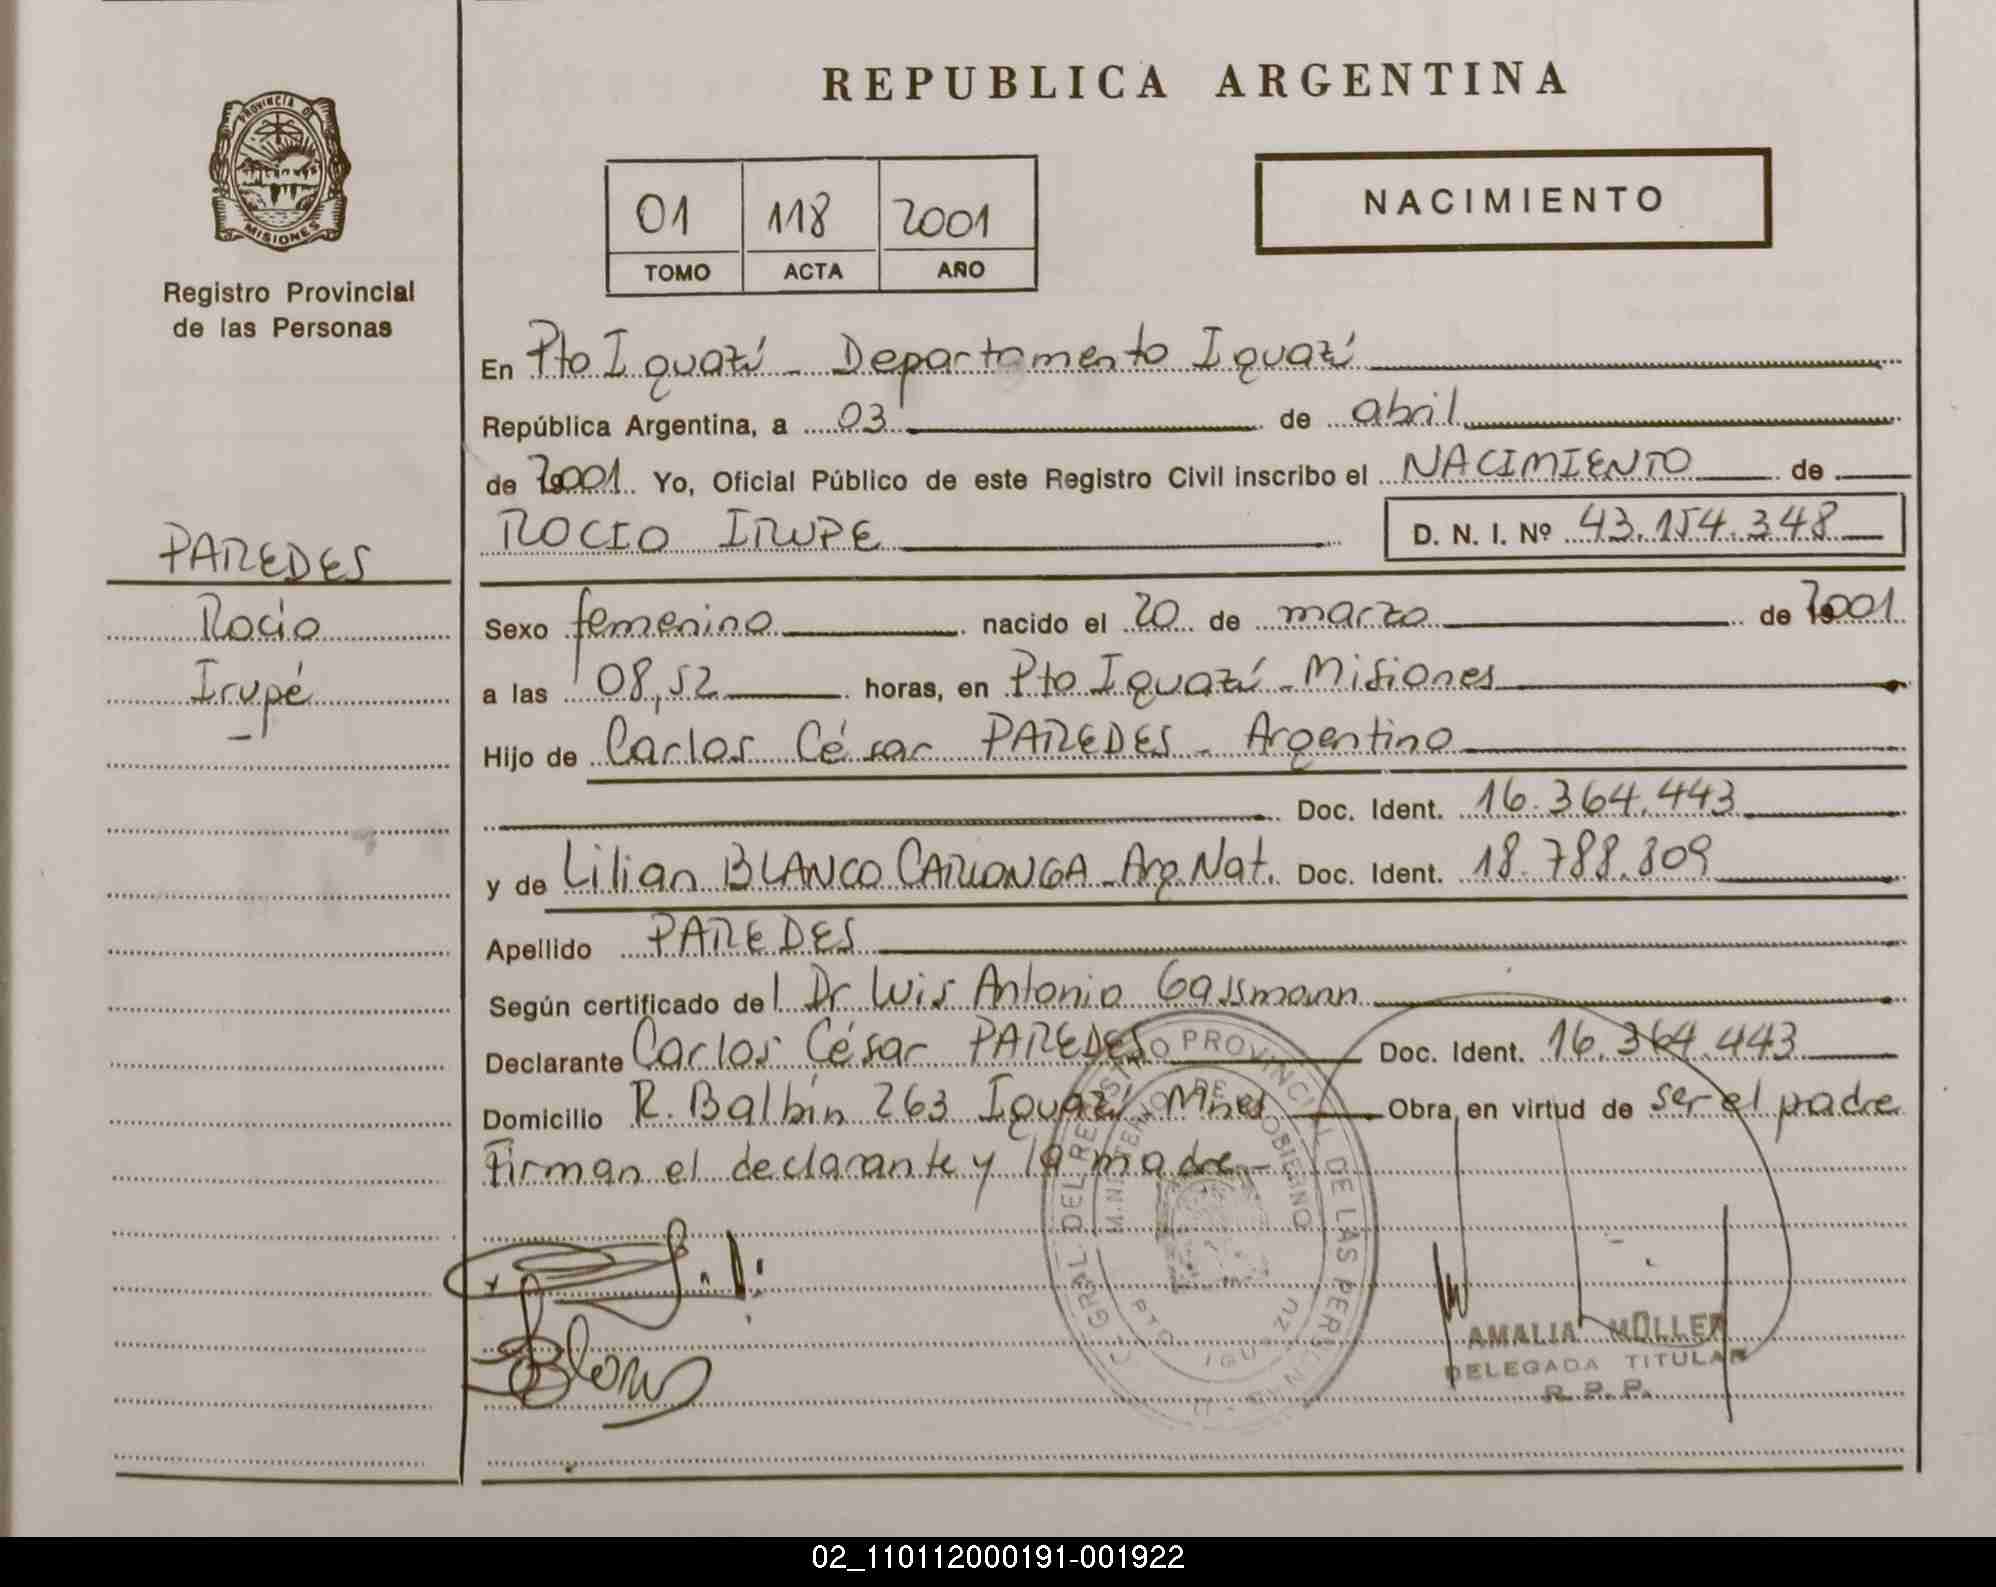 REPUBLICA ARGENTINA
PROVINCIA DE
MISIONES
Registro Provincial
de las Personas
01 118 2001
TOMO ACTA AÑO
NACIMIENTO
En Pto Iguazú - Departamento Iguazú
República Argentina, a 03 de abril
de 2001 Yo, Oficial Público de este Registro Civil inscribo el NACIMIENTO de
ROCIO IRUPE D. N. I. Nº 43.154.348
PAREDES
Rocío
Irupé
Sexo femenino nacido el 20 de marzo de 2001
a las 08,52 horas, en Pto Iguazú - Misiones
Hijo de Carlos César PAREDES - Argentino
Doc. Ident. 16.364.443
y de Lilian BLANCO Arg. Nat. Doc. Ident. 18.788.809
Apellido PAREDES
Según certificado del Dr Luis Antonio Gassmann
Declarante Carlos César PAREDES Doc. Ident. 16.364.443
Domicilio R. Balbín 263 Iguazú Mnes Obra, en virtud de ser el padre
Firman el declarante y la madre -
GRAL DEL REGISTRO PROVINCIAL DE LAS PERSONAS
MINISTERIO DE GOBIERNO
PTO IGUAZU
AMALIA MÜLLER
DELEGADA TITULAR
R. P. P.
02_110112000191-001922